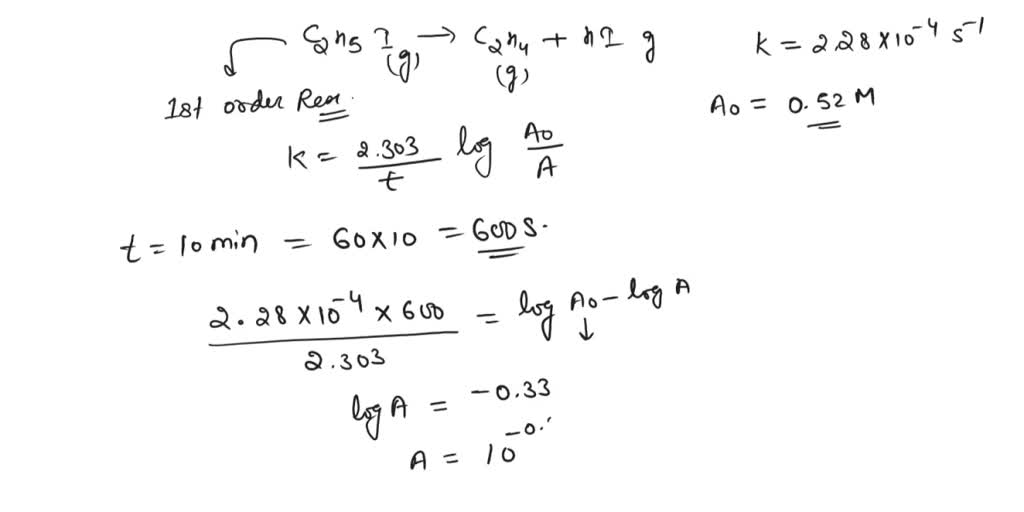 C2H5 I (g) → C2H4 (g) + HI g K = 2.28 × 10^-4 s^-1
1st order Rexn. A0 = 0.52 M
K = 2.303/t log A0/A
t = 10 min = 60 × 10 = 600 S.
2.28 × 10^-4 × 600 / 2.303 = log A0 - log A
↓
log A = -0.33
A = 10^-0.